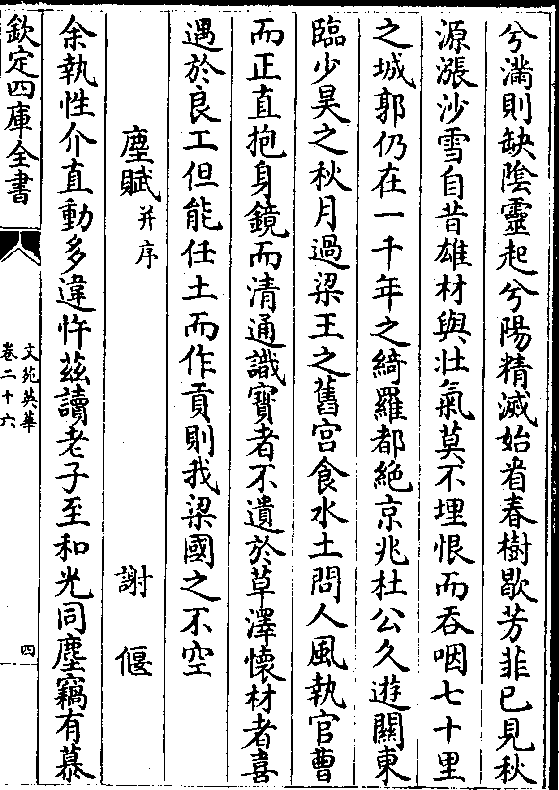 兮滿則缺陰靈起兮陽精滅始看春樹歇芳菲已見秋
源漲沙雪自昔雄材與壯氣莫不埋恨而吞咽七十里
之城郭仍在一千年之綺羅都絶京兆杜公久遊關東
臨少昊之秋月過梁王之舊宫食水土問人風執官曹
而正直抱身鏡而清通識寶者不遺於草澤懷材者喜
遇於良工但能任土而作貢則我梁國之不空
塵賦并序 謝偃
余執性介直動多違忤茲讀老子至和光同塵竊有慕
欽定四庫全書
文苑英華
卷二十六
四